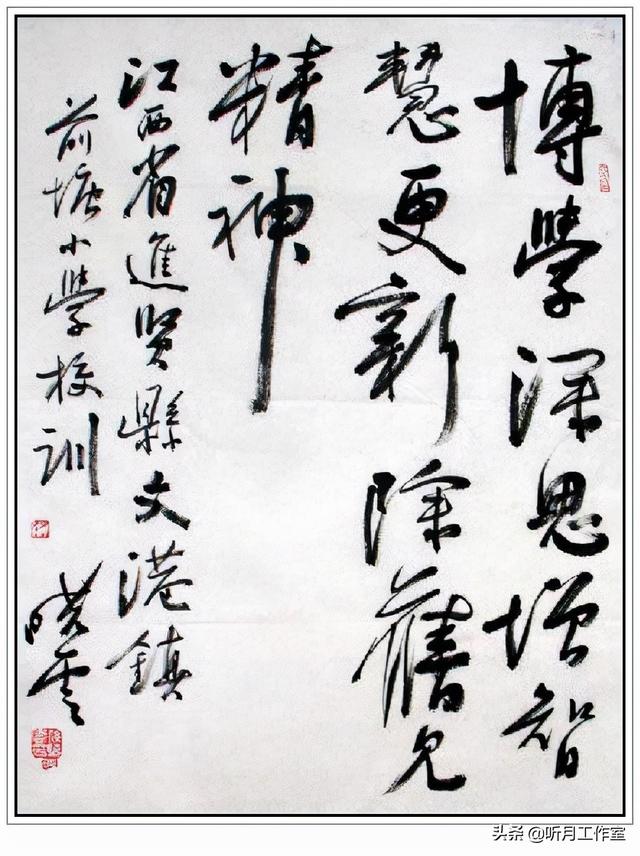 博學深思增智
慧更新除舊見
精神
江西省進賢縣文港鎮
前塘小學校訓
曉雲
头条 @听月工作室